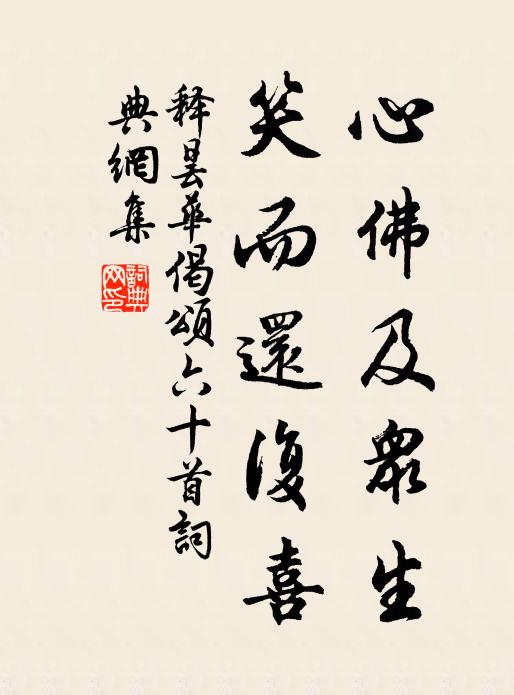 心佛及眾生
笑而還復喜
释曇華偈頌六十首詞
典網集
詞典
网印